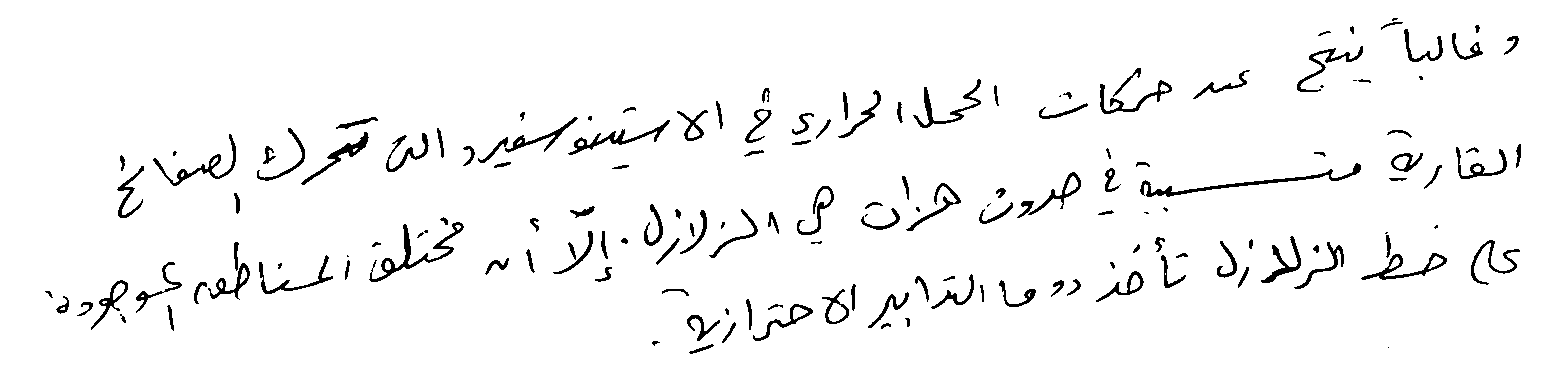 وغالباً ينتج عن حركات الحمل الحراري في الاستينوسفير والتي تحرك الصفائح
القارية متسببة في حدوث هزات هي الزلازل. إلاّ أن مختلف المناطق الموجودة
على خط الزلازل تأخذ دوما التدابير الاحترازية.